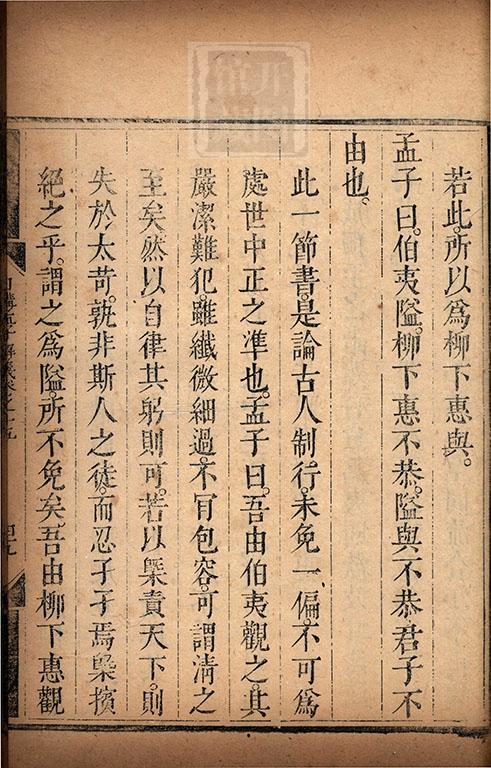 若此。所以爲柳下惠與。
孟子曰。伯夷隘。柳下惠不恭。隘與不恭。君子不
由也。
此一節書。是論古人制行。未免一偏。不可爲
處世中正之準也。孟子曰。吾由伯夷觀之。其
嚴潔難犯。雖纖微細過。不肎包容。可謂淸之
至矣。然以自律其躬則可。若以槩責天下。則
失於太苛。孰非斯人之徒。而忍孑孑焉槩擯
絕之乎。謂之爲隘。所不免矣。吾由柳下惠觀
日講四書解義卷之十五
四九